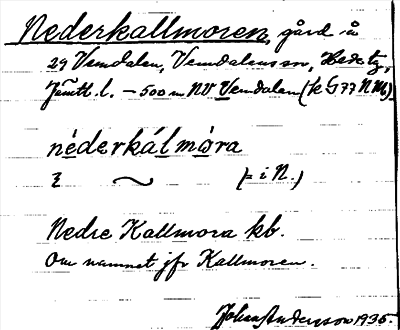 Nederkallmoren, gård å
29 Vemdalen, Vemdalens sn, Hede tg,
Jämtl. l. – 500 m NV Vemdalen (k G 77 N M6)
nèderkálmòra
~ (= i N.)
Nedre Kallmora kb.
Om namnet jfr Kallmoren.
Johan Andersson 1935.